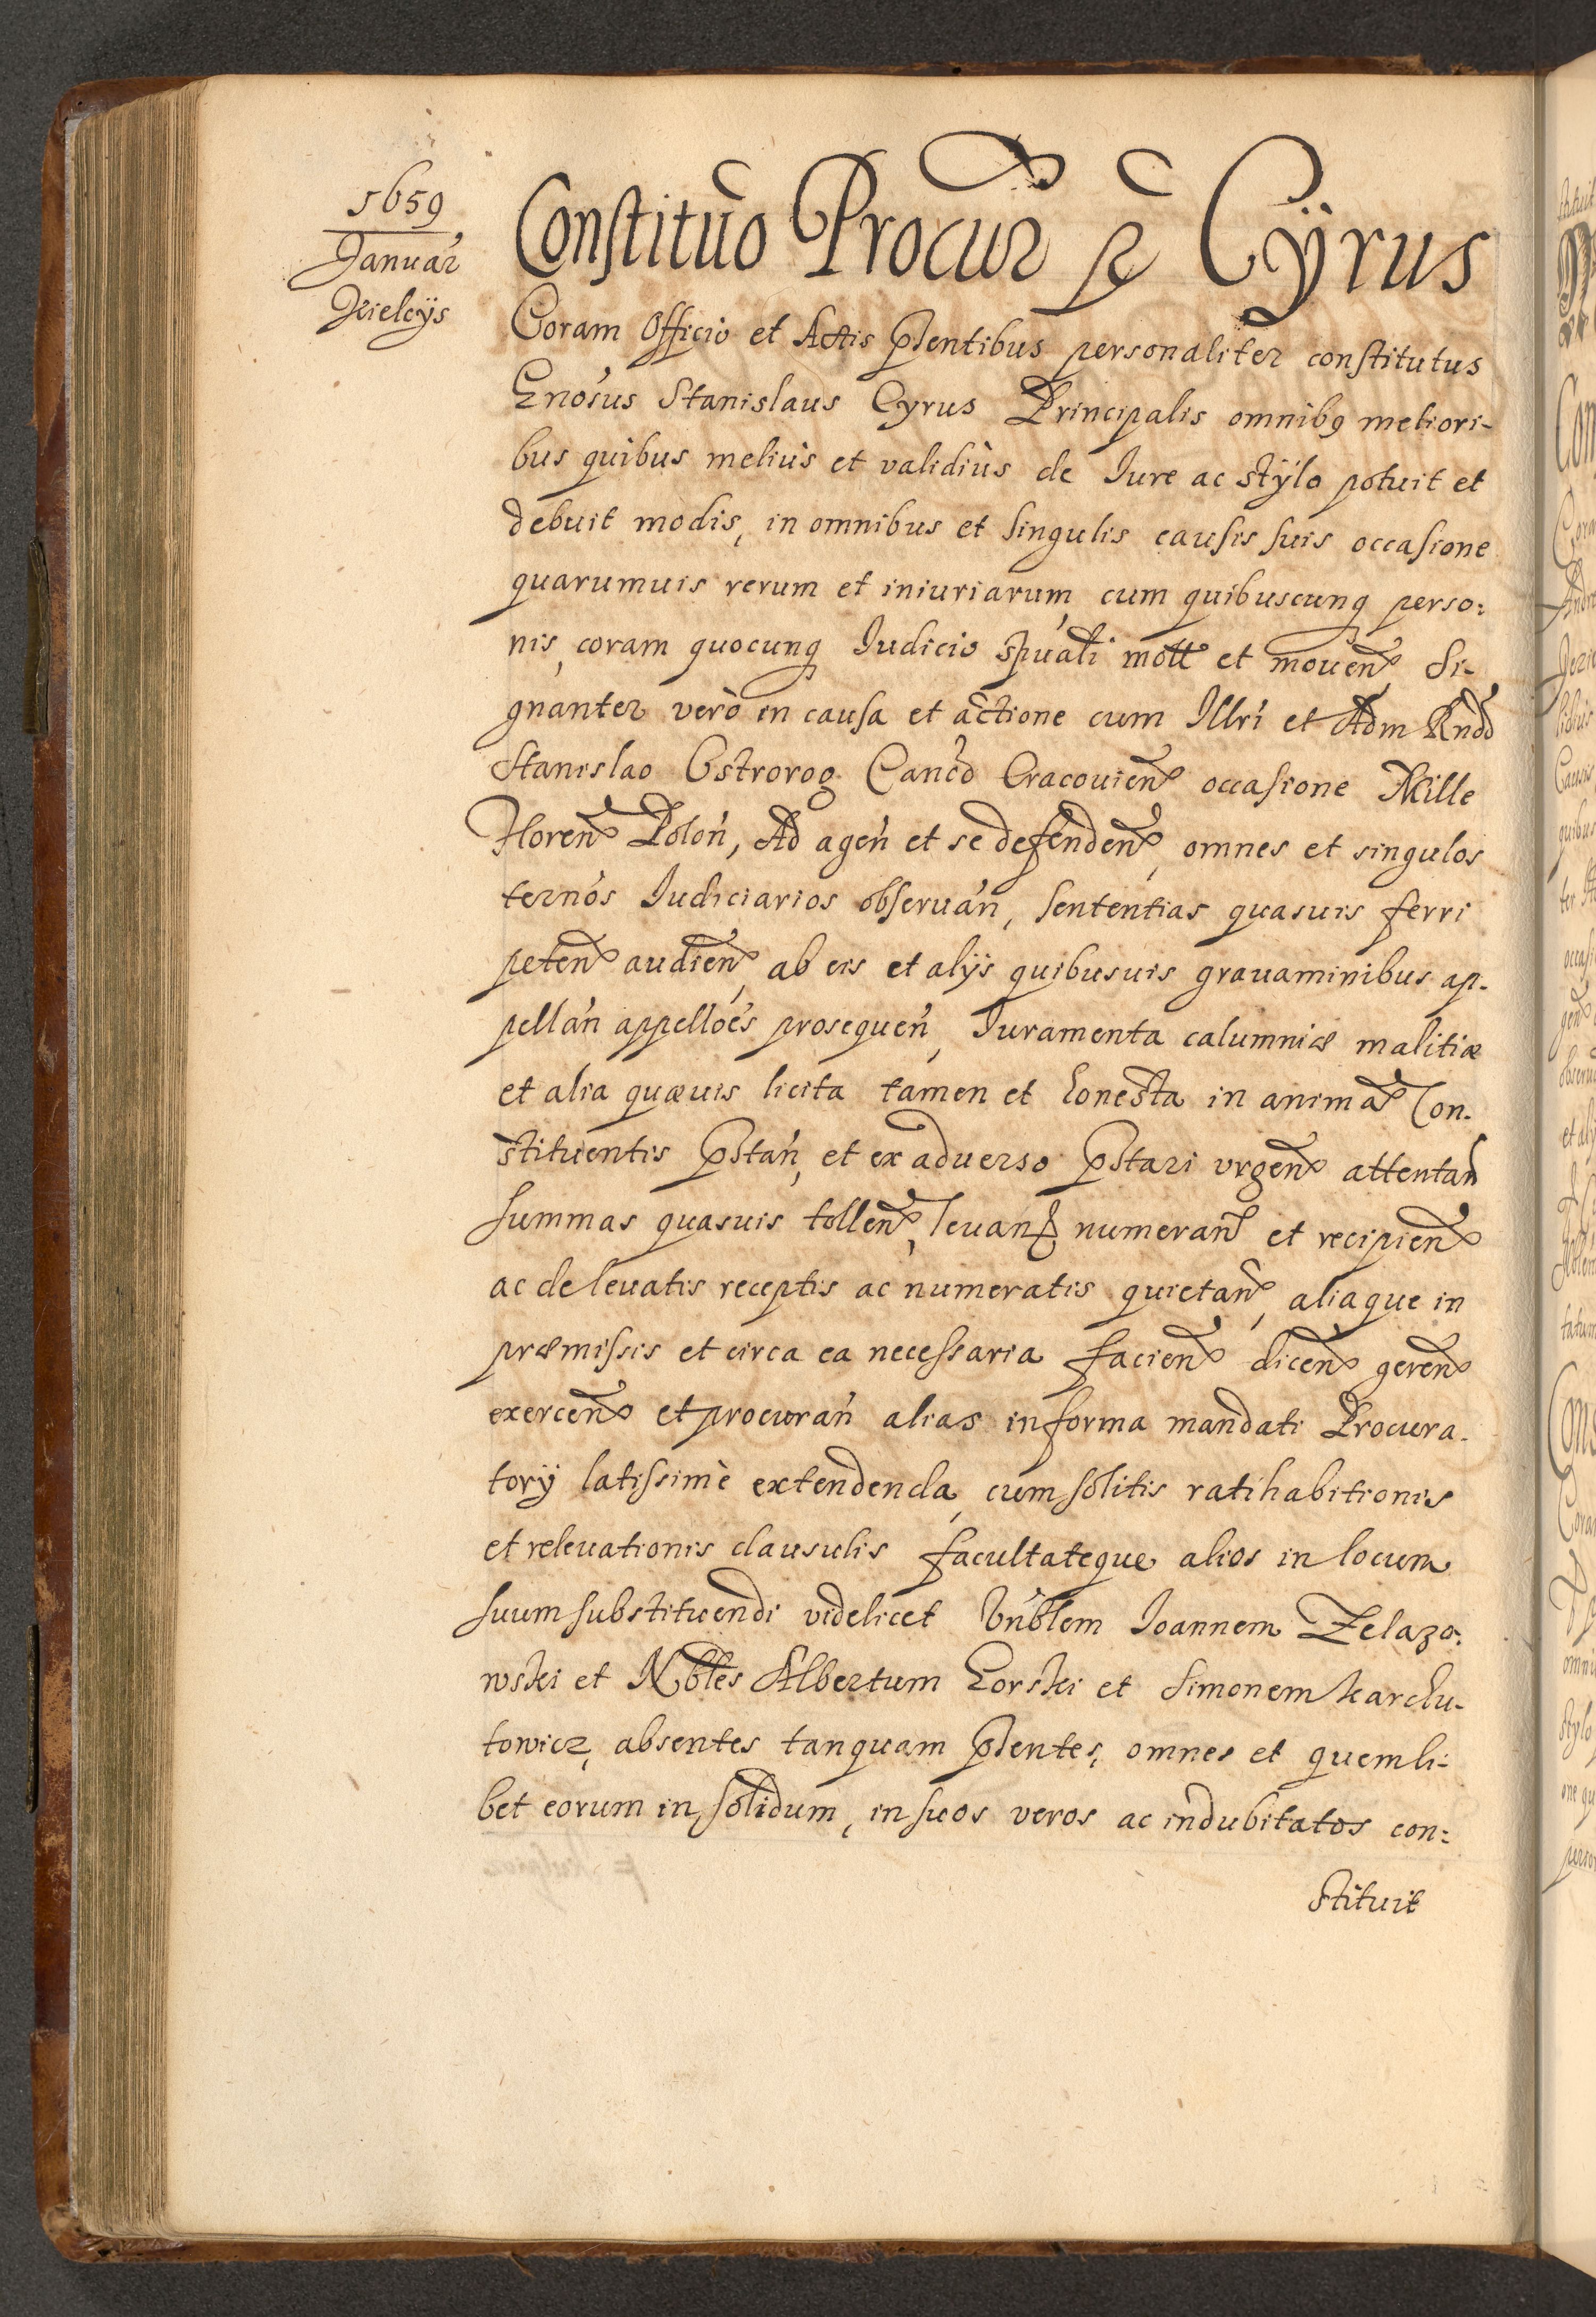 1659
Januar
Kielcijs
Constituo Procur p Cÿrus
Coram Officio et Actis pntibus personaliter constitutus
Gnosus Stanislaus Cyrus Principalis omnibq meliori-
bus quibus meliùs et validiùs de Iure ac stÿlo potuit et
debuit modis, in omnibus et singulis causis suis occasione
quarumuis rerum et iniuriarum, cum quibuscunq perso:
nis, coram quocunq Iudicio spuali mott et mouen, si-
gnanter verò in causa et actione cum Illri et Adm Rndo
Stanislao Ostrorog Canco Cracouien occasione Mille
Floren Polon, Ad agen et se defenden, omnes et singulos
ternos Iudiciarios obseruan, sententias quasuis ferri
peten audien, ab eis et alÿs quibusuis grauaminibus ap-
pellan appelloes prosequen, Iuramenta calumniæ malitiæ
et alia quæuis licita tamen et honesta in anima Con-
stituentis pstan, et ex aduerso pstari vrgen attentan
summas quasuis tollen, leuan numeran et recipien
ac de leuatis receptis ac numeratis quietan, aliaque in
præmissis et circa ea necessaria facien dicen geren
exercen et procuran alias in forma mandati Procura-
torÿ latissimè extendenda, cum solitis ratihabitionis
et releuationis clausulis facultateque alios in locum
suum substituendi videlicet Vnblem Ioannem Zelazo:
wski et Nobles Albertum Gorski et Simonem Karchu-
towicz, absentes tanquam pntes, omnes et quemli-
bet eorum in solidum, in suos veros ac indubitatos con:
stituit